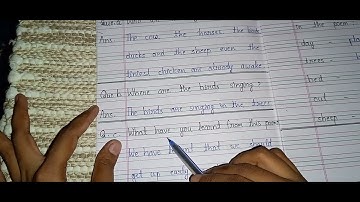 Que.a
Ans. The cow the horses the
ducks and the sheep even the
tiniest chicken are already awake.
Que b Where are the birds singing?
Ans. The birds are singing in the tower
Q-c What have you learnt from this poem
We have learnt that we should
get up early
in the poem
day -
trees -
bed
out
sheep -